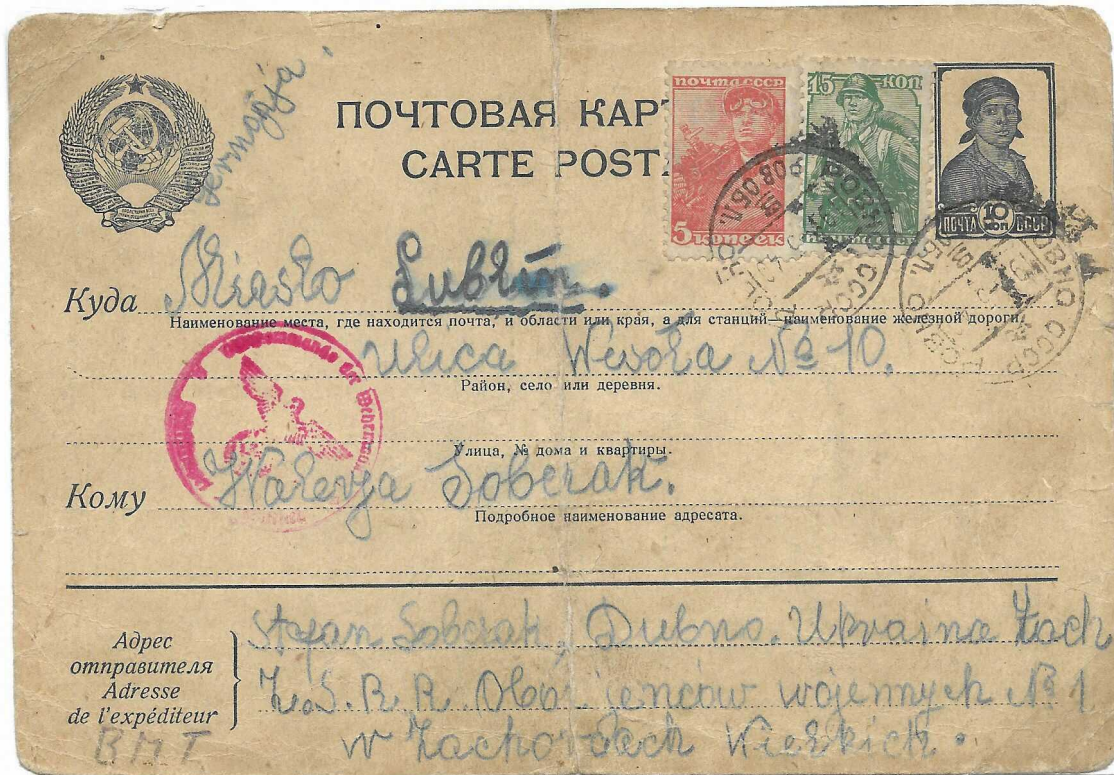 ПОЧТОВАЯ КАР
CARTE POST
ПОЧТА СССР
5 КОПЕЕК
15 КОП
ПОЧТА 10 КОП СССР
Germagja
Куда Miasto Lublin.
Наименование места, где находится почта, и области или края, а для станций—наименование железной дороги.
Ulica Wesoła № 10.
Район, село или деревня.
Улица, № дома и квартиры.
Кому Walerja Sobczak.
Подробное наименование адресата.
Oberkommando der Wehrmacht
РОВНО СССР
РОВНО СССР
Адрес
отправителя
Adresse
de l'expéditeur
Stefan Sobczak, Dubno. Ukraina Zach
Z.S.R.R. Oboz jenców wojennych № 1
w Zachorcach Wielkich.
BMT